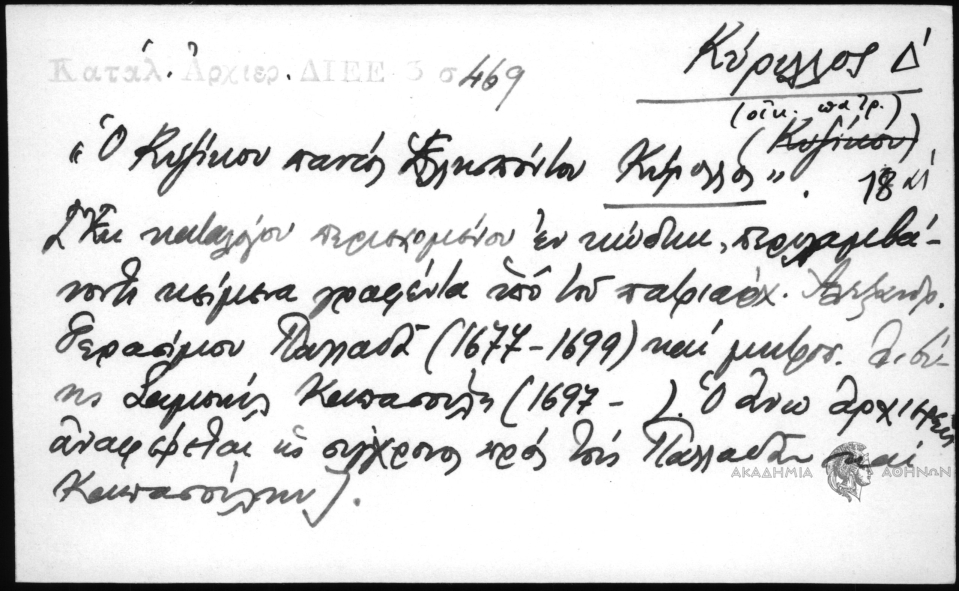 Κατάλ. Ἀρχιερ. ΔΙΕΕ 3 σ 469
Κύριλλος Δ΄
(οἰκ. πατρ.)
(Κυζίκου)
"Ὁ Κυζίκου πανὸς Ἑλλησπόντου Κύριλλος". 18 αἰ
[Ἐκ καταλόγου περισπομένου ἐν κώδικι, περιλαμβά-
νοντι κείμενα γραφέντα ὑπὸ τοῦ πατριάρχ. Ἀλεξανδρ.
Γερασίμου Παλλαδᾶ (1677-1699) καὶ μητροπ.
Καπασούλη (1697- ). Ὁ ἄνω ἀρχιερεὺς
ἀναφέρεται ὡς σύγχρονος πρὸς τοὺς Παλλαδᾶν καὶ
Καπασούλην].
ΑΚΑΔΗΜΙΑ ΑΘΗΝΩΝ